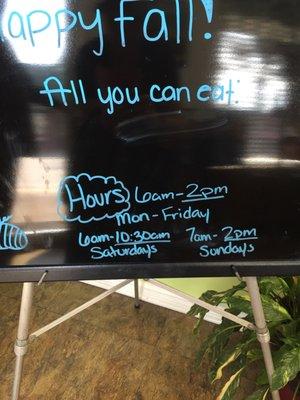 appy Fall!
All you can eat:
Hours 6am-2pm
Mon-Friday
6am-10:30am 7am-2pm
Saturdays Sundays